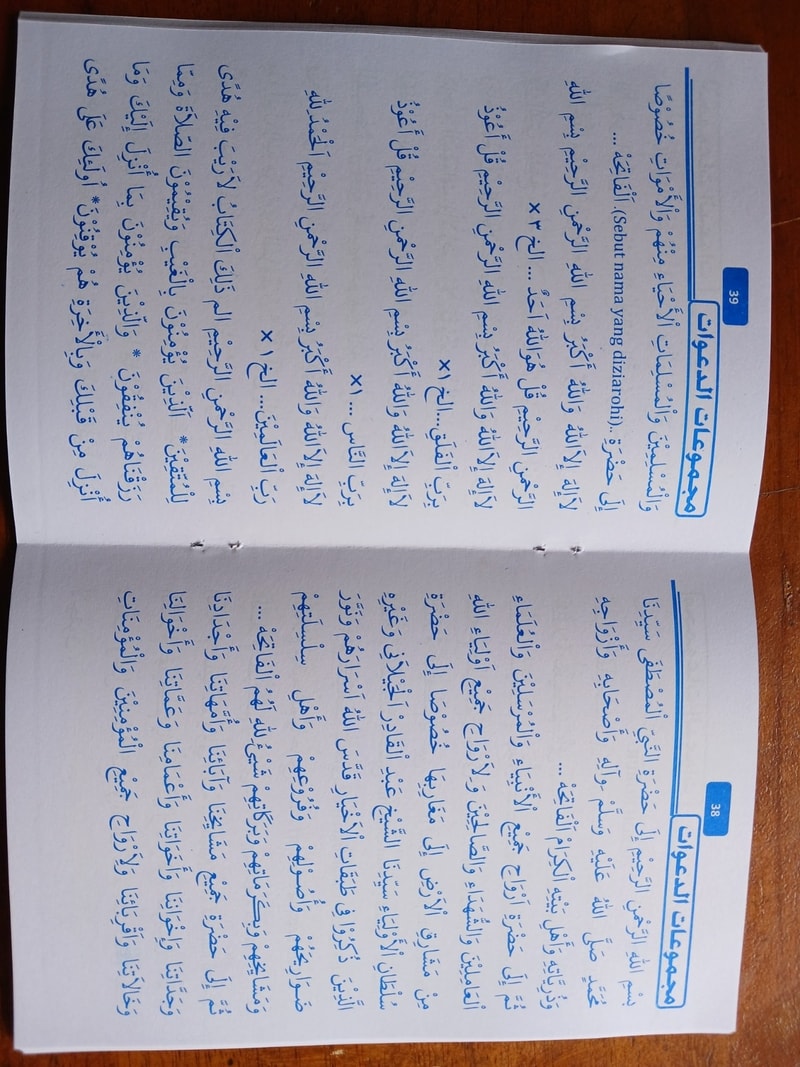 38
مجموعات الدعوات
بِسْمِ اللهِ الرَّحْمنِ الرَّحِيْمِ إِلَى حَضْرَةِ النَّبِيِّ الْمُصْطَفَى سَيِّدِنَا
مُحَمَّدٍ صَلَّى اللهُ عَلَيْهِ وَسَلَّمْ وآلِهِ وَأَصْحَابِهِ وَأَزْوَاجِهِ
وَذُرِّيَّاتِهِ وَأَهْلِ بَيْتِهِ الْكِرَامْ اَلْفَاتِحَهْ ...
ثُمَّ إِلَى حَضْرَةِ اَرْوَاحِ جَمِيْعِ الْأَنْبِيَاءِ وَالْمُرْسَلِيْنَ وَالْعُلَمَاءِ
الْعَامِلِيْنَ وَالشُّهَدَاءِ وَالصَّالِحِيْنَ وَلِاَرْوَاحِ جَمِيْعِ اَوْلِيَاءِ اللهِ
مِنْ مَشَارِقِ الْاَرْضِ إِلَى مَغَارِبِهَا خُصُوْصًا إِلَى حَضْرَةِ
سُلْطَانِ الْأَوْلِيَاءِ سَيِّدِنَا الشَّيْخِ عَبْدِ الْقَادِرْ اَلْجَيْلَانِى وَغَيْرِهِ
الَّذِيْنَ ذُكِرُوْا فِى طَبَقَاتِ الْأَخْيَارِ قَدَّسَ اللهُ أَسْرَارَهُمْ وَنَوَّرَ
ضَوَارِيْحَهُمْ وَأُصُوْلِهِمْ وَفُرُوْعِهِمْ وَأَهْلِ سِلْسِلَتِهِمْ
وَمَشَايِخِهِمْ وَبِكَرَمَاتِهِمْ وَبَرَكَاتِهِمْ شَيْئٌ لِلهِ لَهُمُ الْفَاتِحَهْ ...
ثُمَّ إِلَى حَضْرَةِ جَمِيْعِ مَشَايِخِنَا وَآبَائِنَا وَأُمَّهَاتِنَا وَأَجْدَادِنَا
وَجَدَّاتِنَا وَإِخْوَانِنَا وَأَخَوَاتِنَا وَأَعْمَامِنَا وَعَمَّاتِنَا وَأَخْوَالِنَا
وَخَالَاتِنَا وَأَقْرِبَائِنَا وَلِاَرْوَاحِ جَمِيْعِ الْمُؤْمِنِيْنَ وَالْمُؤْمِنَاتِ
39
مجموعات الدعوات
وَالْمُسْلِمِيْنَ وَالْمُسْلِمَاتِ الْأَحْيَاءِ مِنْهُمْ وَالْأَمْوَاتِ خُصُوْصًا
إِلَى حَضْرَةِ ..(Sebut nama yang diziarohi). اَلْفَاتِحَهْ ...
لَا إِلهَ إِلاَّ اللهُ وَاللهُ أَكْبَرُ بِسْمِ اللهِ الرَّحْمنِ الرَّحِيْمِ بِسْمِ اللهِ
الرَّحْمنِ الرَّحِيْمِ قُلْ هُوَ اللهُ اَحَدٌ ... الخ ٣ ×
لَا إِلهَ إِلاَّ اللهُ وَاللهُ أَكْبَرُ بِسْمِ اللهِ الرَّحْمنِ الرَّحِيْمِ قُلْ أَعُوْذُ
بِرَبِّ الْفَلَقِ...الخ ١×
لَا إِلهَ إِلاَّ اللهُ وَاللهُ أَكْبَرُ بِسْمِ اللهِ الرَّحْمنِ الرَّحِيْمِ قُلْ أَعُوْذُ
بِرَبِّ النَّاسِ ... ١×
لَا إِلهَ إِلاَّ اللهُ وَاللهُ أَكْبَرُ بِسْمِ اللهِ الرَّحْمنِ الرَّحِيْمِ اَلْحَمْدُ لِلهِ
رَبِّ الْعَالَمِيْنَ... الخ ١ ×
بِسْمِ اللهِ الرَّحْمنِ الرَّحِيْمِ الم ذَلِكَ الْكِتَابُ لاَرَيْبَ فِيْهِ هُدًى
لِلْمُتَّقِيْنَ* الَّذِيْنَ يُؤْمِنُوْنَ بِالْغَيْبِ وَيُقِيْمُوْنَ الصَّلَاةَ وَمِمَّا
رَزَقْنَاهُمْ يُنْفِقُوْنَ * وَالَّذِيْنَ يُؤْمِنُوْنَ بِمَا أُنْزِلَ إِلَيْكَ وَمَا
أُنْزِلَ مِنْ قَبْلِكَ وَبِالْأَخِرَةِ هُمْ يُوْقِنُوْنَ* أُولَئِكَ عَلَى هُدًى